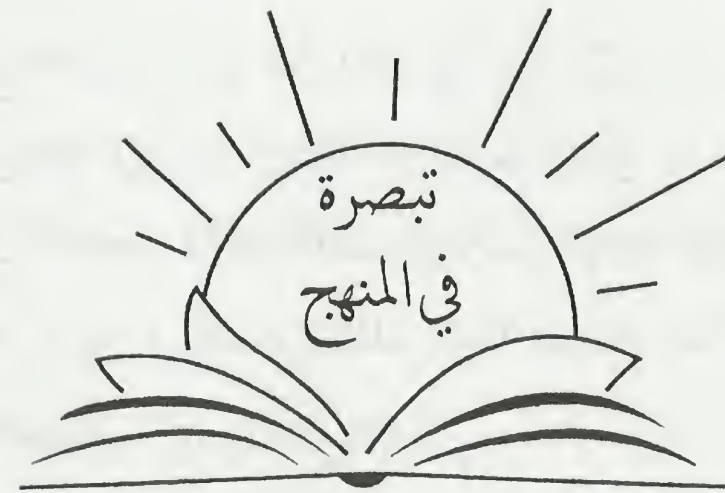 تبصرة
في المنهج